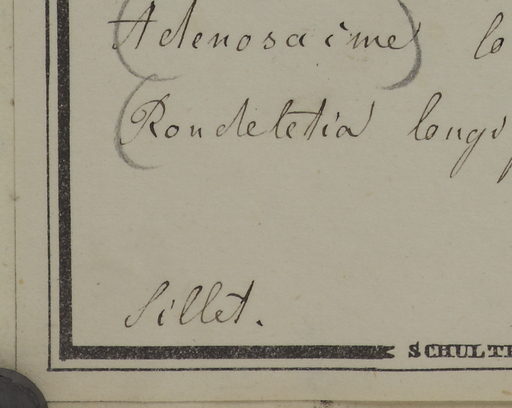 (Adenosacme) lo
(Rondeletia longi
Sillet.
SCHULT